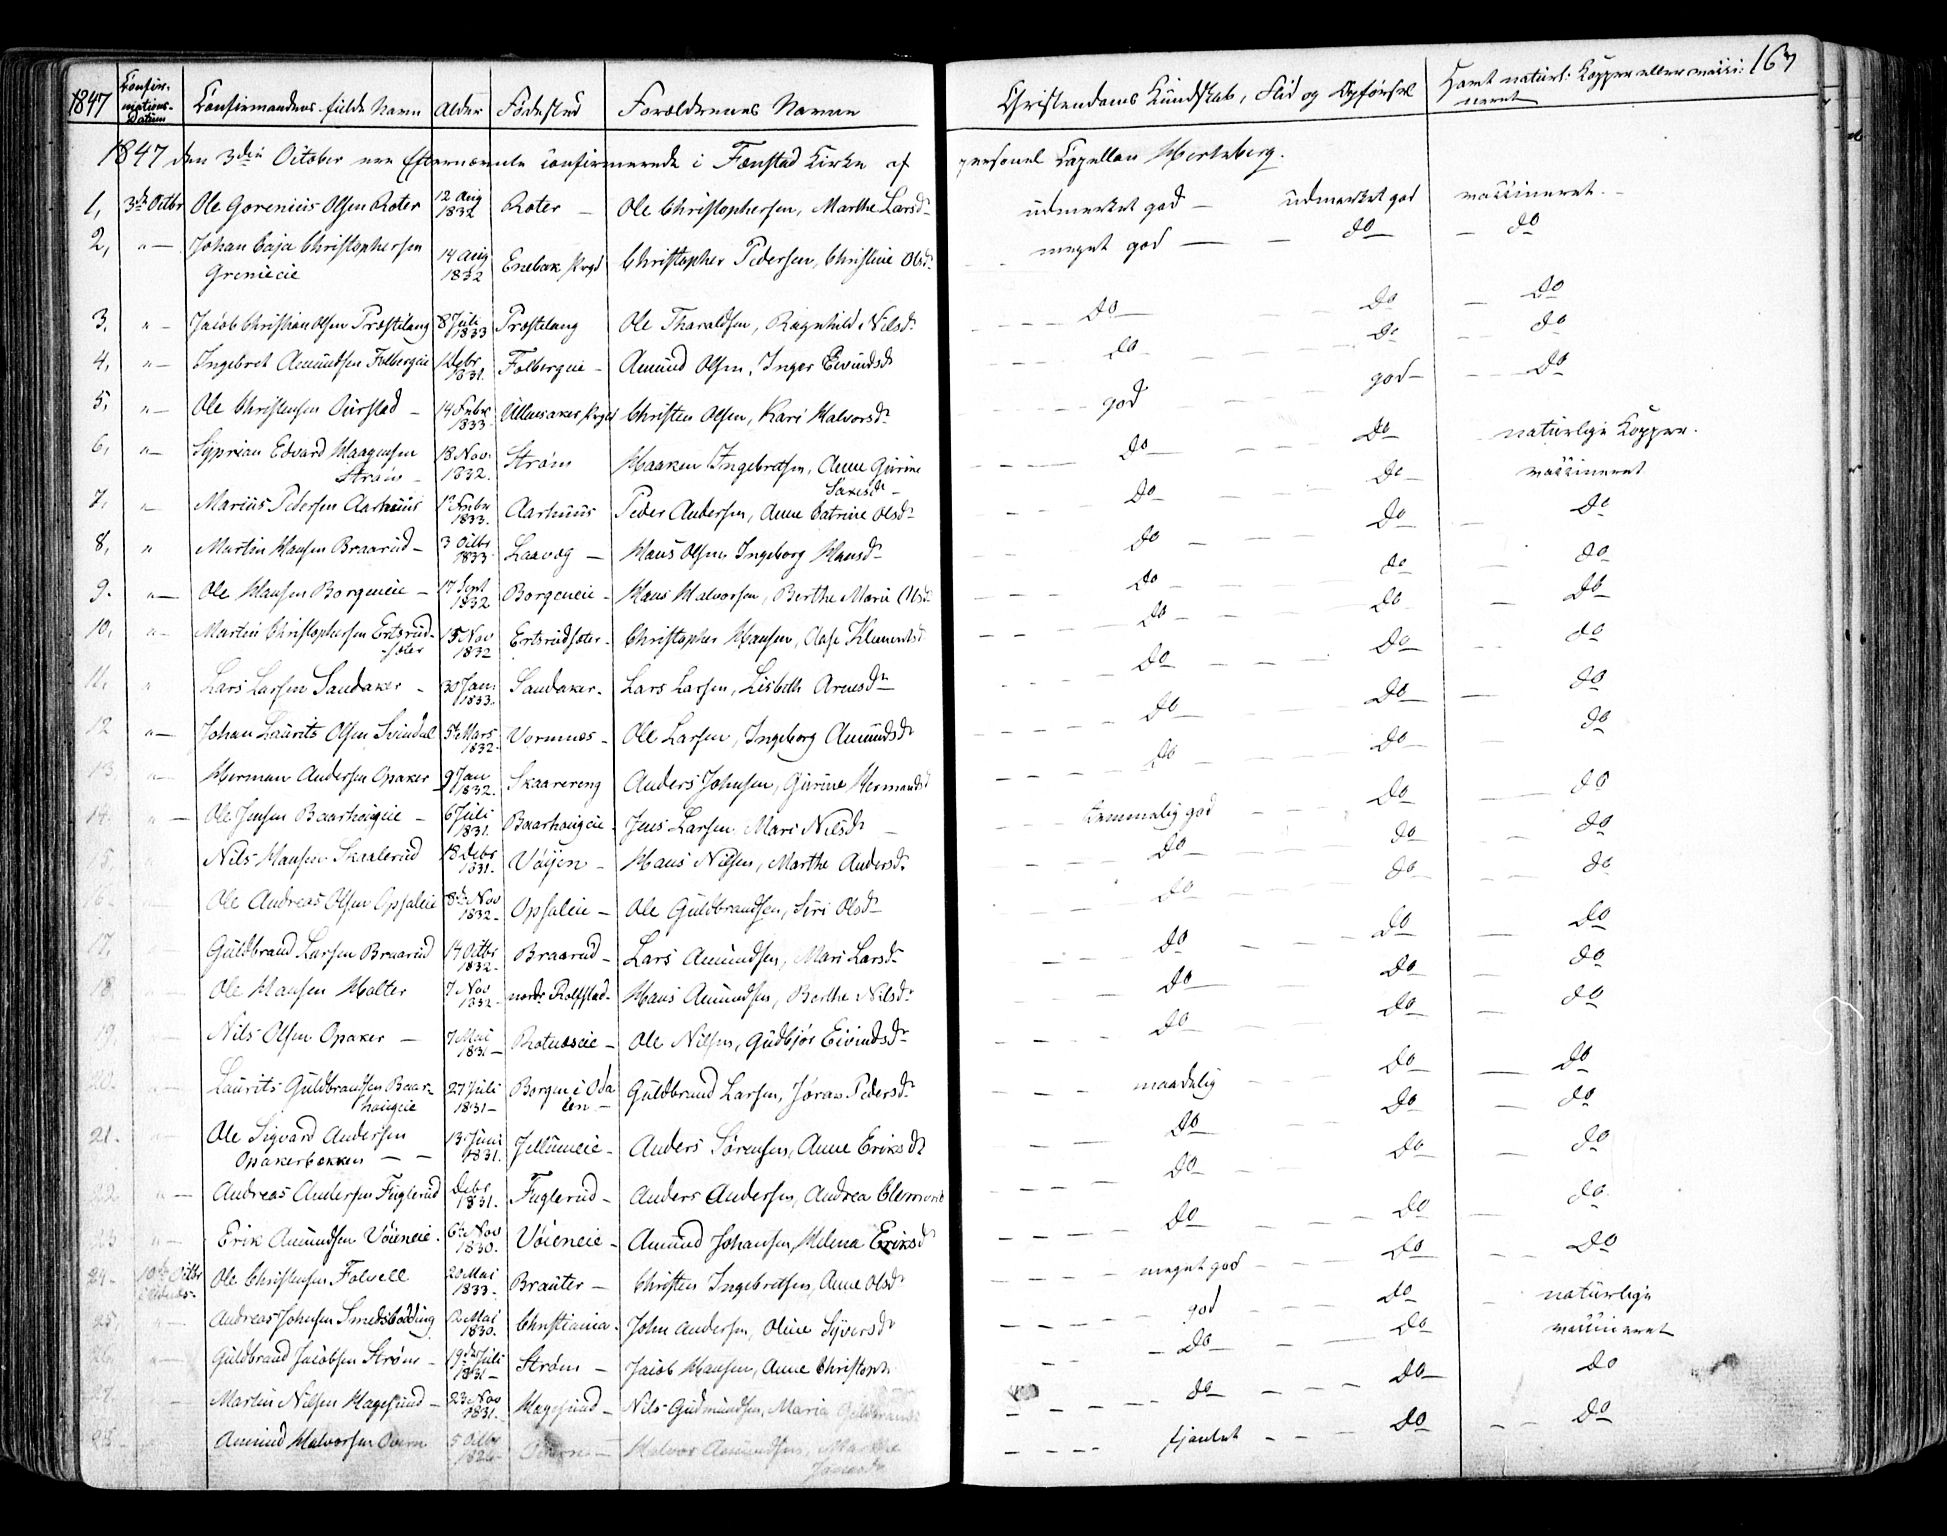 1847 Confirmations-Datum Confirmandens fulde Navn Alder Fødested Forældrenes Navne Christendoms Kundskab, Flid og Opførsel Havt naturl: Kopper eller vacci: neret 167
1847 den 3die October ere Efternævnte confirmerede i Fænstad Kirke af personel Capellan Hertzberg.
1, 3de Octbr Ole Gorenius Olsen Roter 12 Aug 1832 Roter – Ole Christophersen, Marthe Larsdr udmerket god – udmerket god vaccineret –
2, " – Johan Caja Christophersen 14 Aug 1832 Enebak Prgd Christopher Pedersen, Christine Olsdr meget god – do – do
3. " – Jacob Christian Olsen Præstelang 8 Juli 1833 Præstelang Ole Tharaldsen, Ragnhild Nilsdr do do – do
4, " – Ingebret Amundsen Folbergeie Debr 1831. Folbergeie – Amund Olsen, Inger Eivindsdr do do do
5, " – Ole Christensen – 14 Febr 1833 Ullensaker Prgd Christen Olsen, Kari Halvorsdr god god – do
6, " – Syprian Edvard Haagensen Strøm – 18 Nov 1832. Strøm Haaken Ingebretsen, Anne Gurine do do naturlige Kopper.
7, " Marius Pedersen Aarhuus Febr 1833. Aarhuus Peder Andersen, Anne Catrine Olsdr do do – vaccineret
8, " Martin Hansen Braarud – 3 Octbr 1833 Laavæg – Hans Olsen, Ingeborg Hansdr do do do
9. " – Ole Hansen Borgeneie – 17 Sept 1832 Borgeneie – Hans Halvorsen, Berthe Marie Olsdr do do do
10, " – Martin Christophersen Ertsrud-sæter 15 Nov 1832 Ertsrudsæter – Christopher Hansen, Aase Klementsdr do do do
11, " Lars Larsen Sandaker – 30 Jan. 1833. Sandaker – Lars Larsen, Lisbeth Arnesdr do do do
12 " – Johan Laurits Olsen Svindal 5 Mars 1832 Vormnæs – Ole Larsen, Ingeborg Amundsdr do do – do
13, " – Herman Andersen Opaker 9 Jan 1832. Skaarereng Anders Johnsen, Gurine Hermandsd do do do
14. " – Ole Jensen Baarhaugeie – 6 Juli 1831. Baarhaugeie – Jens Larsen, Mari Nilsdr temmelig god do do
15 Nils Hansen Skaalerud 18 Debr 1831. Vøyen – Hans Nilsen, Marthe Andersdr do do do
16 – Ole Andreas Olsen Opsaleie 8de Nov 1832 – Opsaleie – Ole Guldbrandsen, Siri Olsdr do do do
17, Guldbrand Larsen Braarud 14 Octbr 1832 – Braarud – Lars Amundsen, Mari Larsdr do do do
18 Ole Hansen Holter 7 Nov 1832 – nordr Rolfstad – Hans Amundsen, Berthe Nilsdr do do do
19, Nils Olsen Opaker – 7 Mai 1831 – Rotnæseie – Ole Nilsen, Gudbjør Eivindsdr do do do
20. Laurits Guldbrandsen Baar-haugeie 27 Juli 1831 – Borgen i Odalen – Guldbrand Larsen, Joran Pedersdr maadelig do do
21. " – Ole Sigvard Andersen Opakerbakken – – 13 Juni 1831. Jellumeie – Anders Sørensen, Anne Eriksdr do do do
22. " – Andreas Andersen Fuglerud Debr 1831. Fuglerud – Anders Andersen, Andrea do do do
23 " – Erik Amundsen Vøieneie. 6te Nov 1830. Vøieneie – Amund Johansen, Helena Eriksd do do do
24. 10de Octbr Ole Christensen Folvell 20 Mai 1833 – Brauter – Christen Ingebretsen, Anne Olsdr meget god do do
25, Andreas Johnsen Smedsbødding 12 Mai 1830. Christiania – John Andersen, Oline Syversdr god do naturlige
26, " – Guldbrand Jacobsen Strøm – 19de Juli 1831 – Strøm – Jacob Hansen, Anne do do vaccineret
27. Martin Nilsen Hagesund – 23 Nov 1831. Hagesund – Nils Gudmundsen, Maria Guldbrands do do do
28. Amund Halvorsen 5 Octbr Halvor Amundsen, Marthe do do